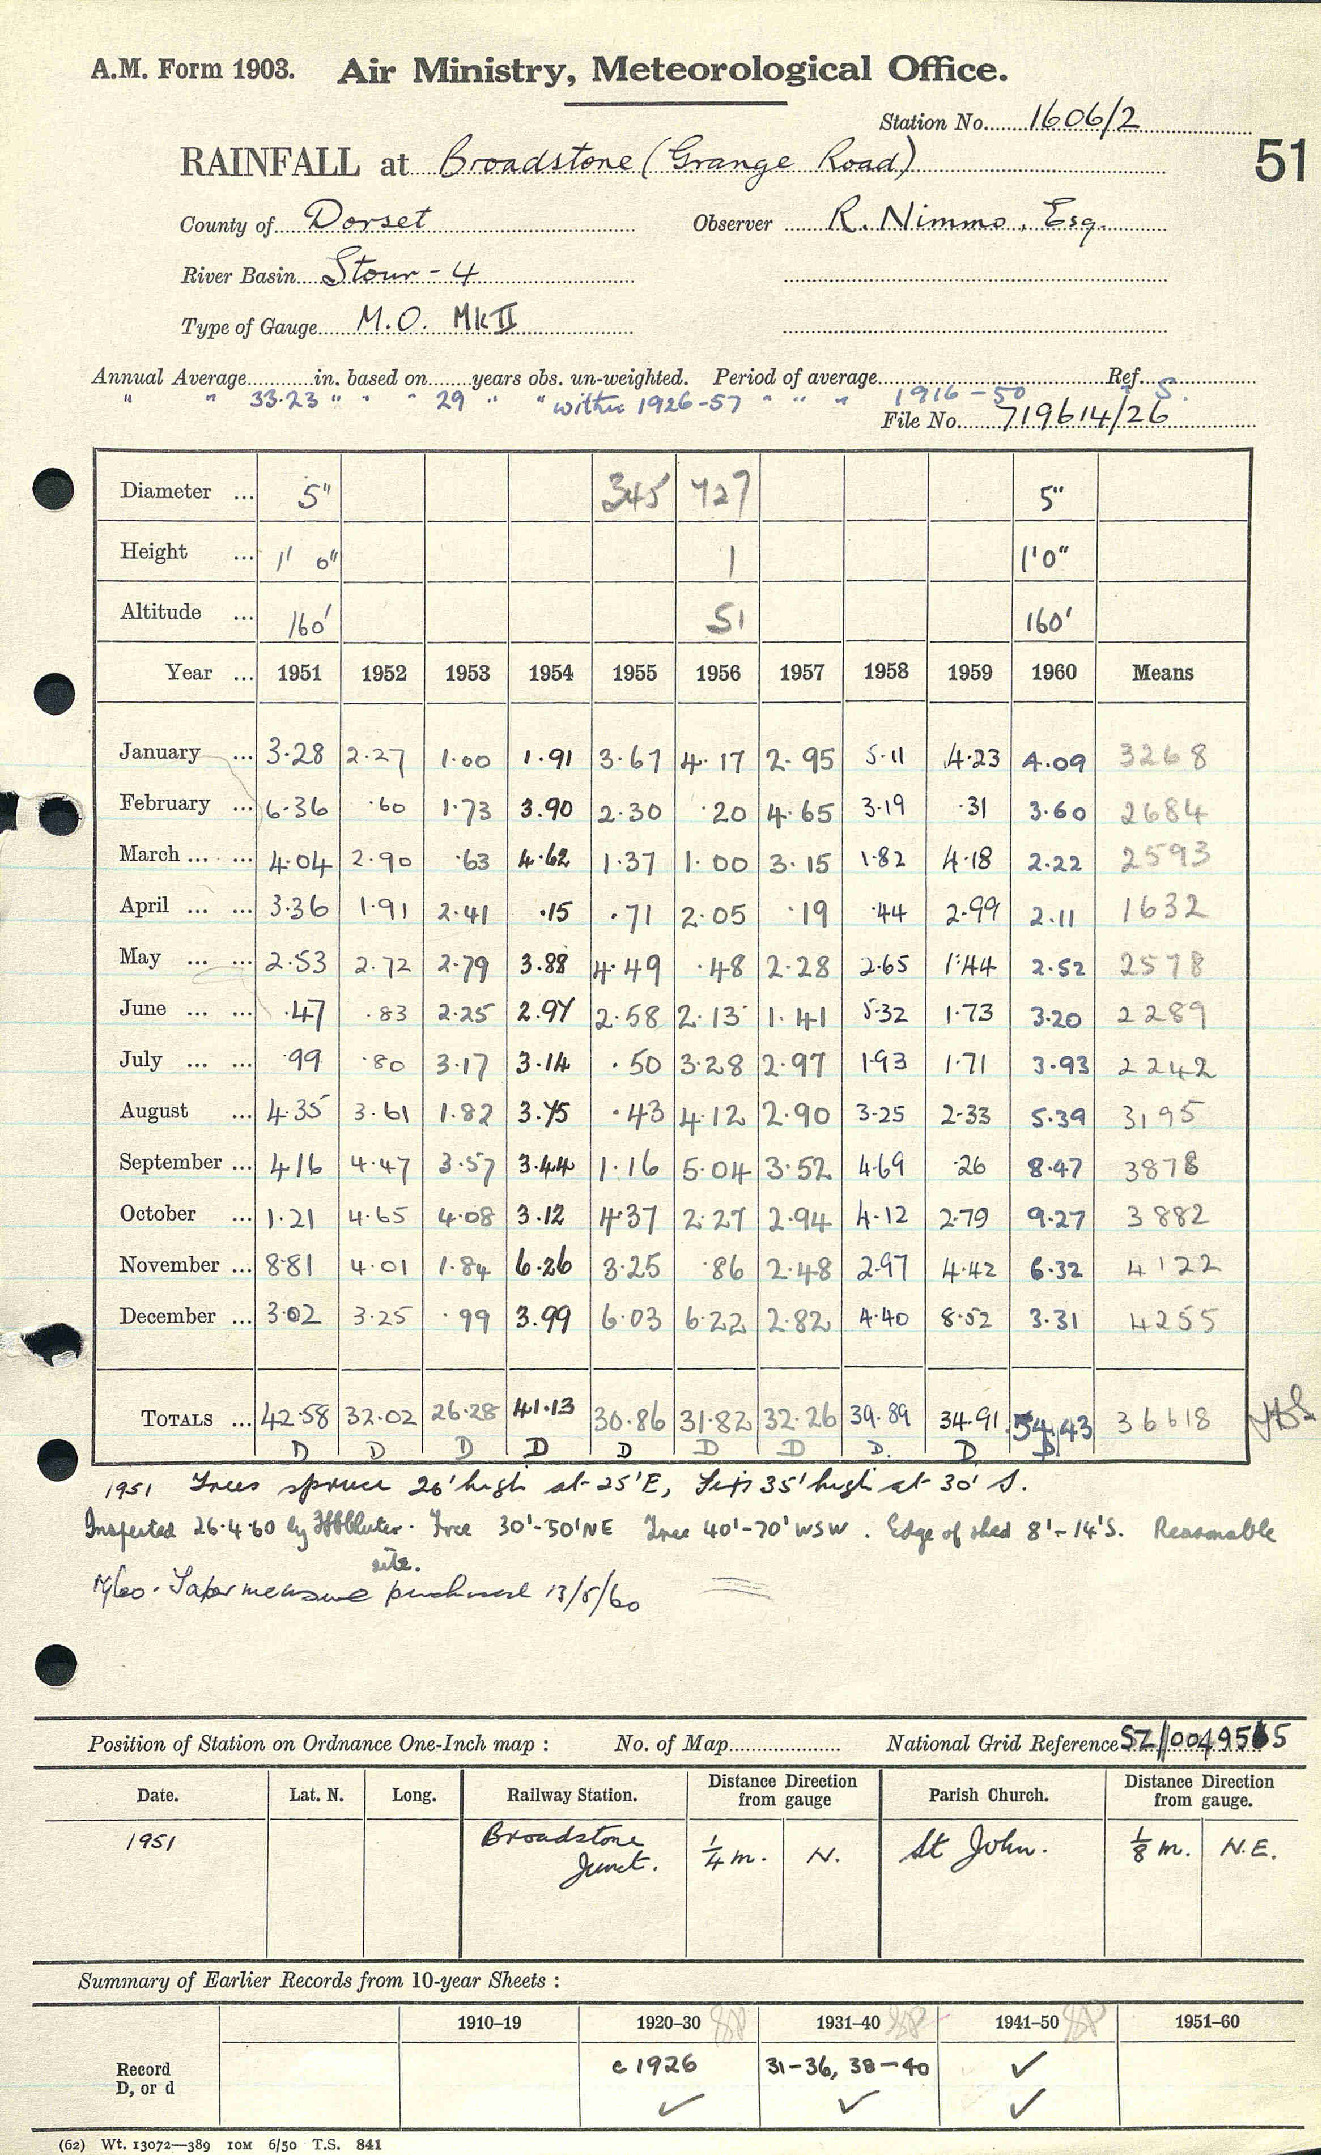 A.M. Form 1903. Air Ministry, Meteorological Office.
Station No. 1606/2
51
RAINFALL at Broadstone (Grange Road)
County of Dorset Observer R. Nimmo, Esq.
River Basin Stour - 4
Type of Gauge M.O. Mk II
Annual Average in. based on years obs. un-weighted. Period of average Ref.
" " 33.23 " " " 29 " " within 1926-57 " " " 1916-50 S.
File No. 719614/26
Diameter ... 5" 345 727 5"
Height ... 1' 0" 1 1'0"
Altitude ... 160' 51 160'
Year ... 1951 1952 1953 1954 1955 1956 1957 1958 1959 1960 Means
January ... 3.28 2.27 1.00 1.91 3.67 4.17 2.95 5.11 4.23 4.09 3268
February ... 6.36 .60 1.73 3.90 2.30 .20 4.65 3.19 .31 3.60 2684
March ... ... 4.04 2.90 .63 4.62 1.37 1.00 3.15 1.82 4.18 2.22 2593
April ... ... 3.36 1.91 2.41 .15 .71 2.05 .19 .44 2.99 2.11 1632
May ... ... 2.53 2.72 2.79 3.88 4.49 .48 2.28 2.65 1.44 2.52 2578
June ... ... .47 .83 2.25 2.97 2.58 2.13 1.41 5.32 1.73 3.20 2289
July ... ... .99 .80 3.17 3.14 .50 3.28 2.97 1.93 1.71 3.93 2242
August ... 4.35 3.61 1.82 3.75 .43 4.12 2.90 3.25 2.33 5.39 3195
September ... 4.16 4.47 3.57 3.44 1.16 5.04 3.52 4.69 .26 8.47 3878
October ... 1.21 4.65 4.08 3.12 4.37 2.27 2.94 4.12 2.79 9.27 3882
November ... 8.81 4.01 1.84 6.26 3.25 .86 2.48 2.97 4.42 6.32 4122
December ... 3.02 3.25 .99 3.99 6.03 6.22 2.82 4.40 8.52 3.31 4255
TOTALS ... 42.58 32.02 26.28 41.13 30.86 31.82 32.26 39.89 34.91 54.43 36618
D D D D D D D D. D D
1951 Trees spruce 26' high at 25' E, 35' high at 30' S.
Inspected 26.4.60 by Tree 30'-50' NE Tree 40'-70' WSW. Edge of shed 8'-14' S. Reasonable
site.
Taper measure purchased 13/5/60
Position of Station on Ordnance One-Inch map : No. of Map National Grid Reference SZ/
Date. Lat. N. Long. Railway Station. Distance Direction from gauge Parish Church. Distance Direction from gauge.
1951 Broadstone Junct. 1/4 m. N. St John. 1/8 m. N.E.
Summary of Earlier Records from 10-year Sheets :
1910–19 1920–30 1931–40 1941–50 1951–60
Record c 1926 31-36, 38-40 ✓
D, or d ✓ ✓ ✓
(62) Wt. 13072—389 10M 6/50 T.S. 841